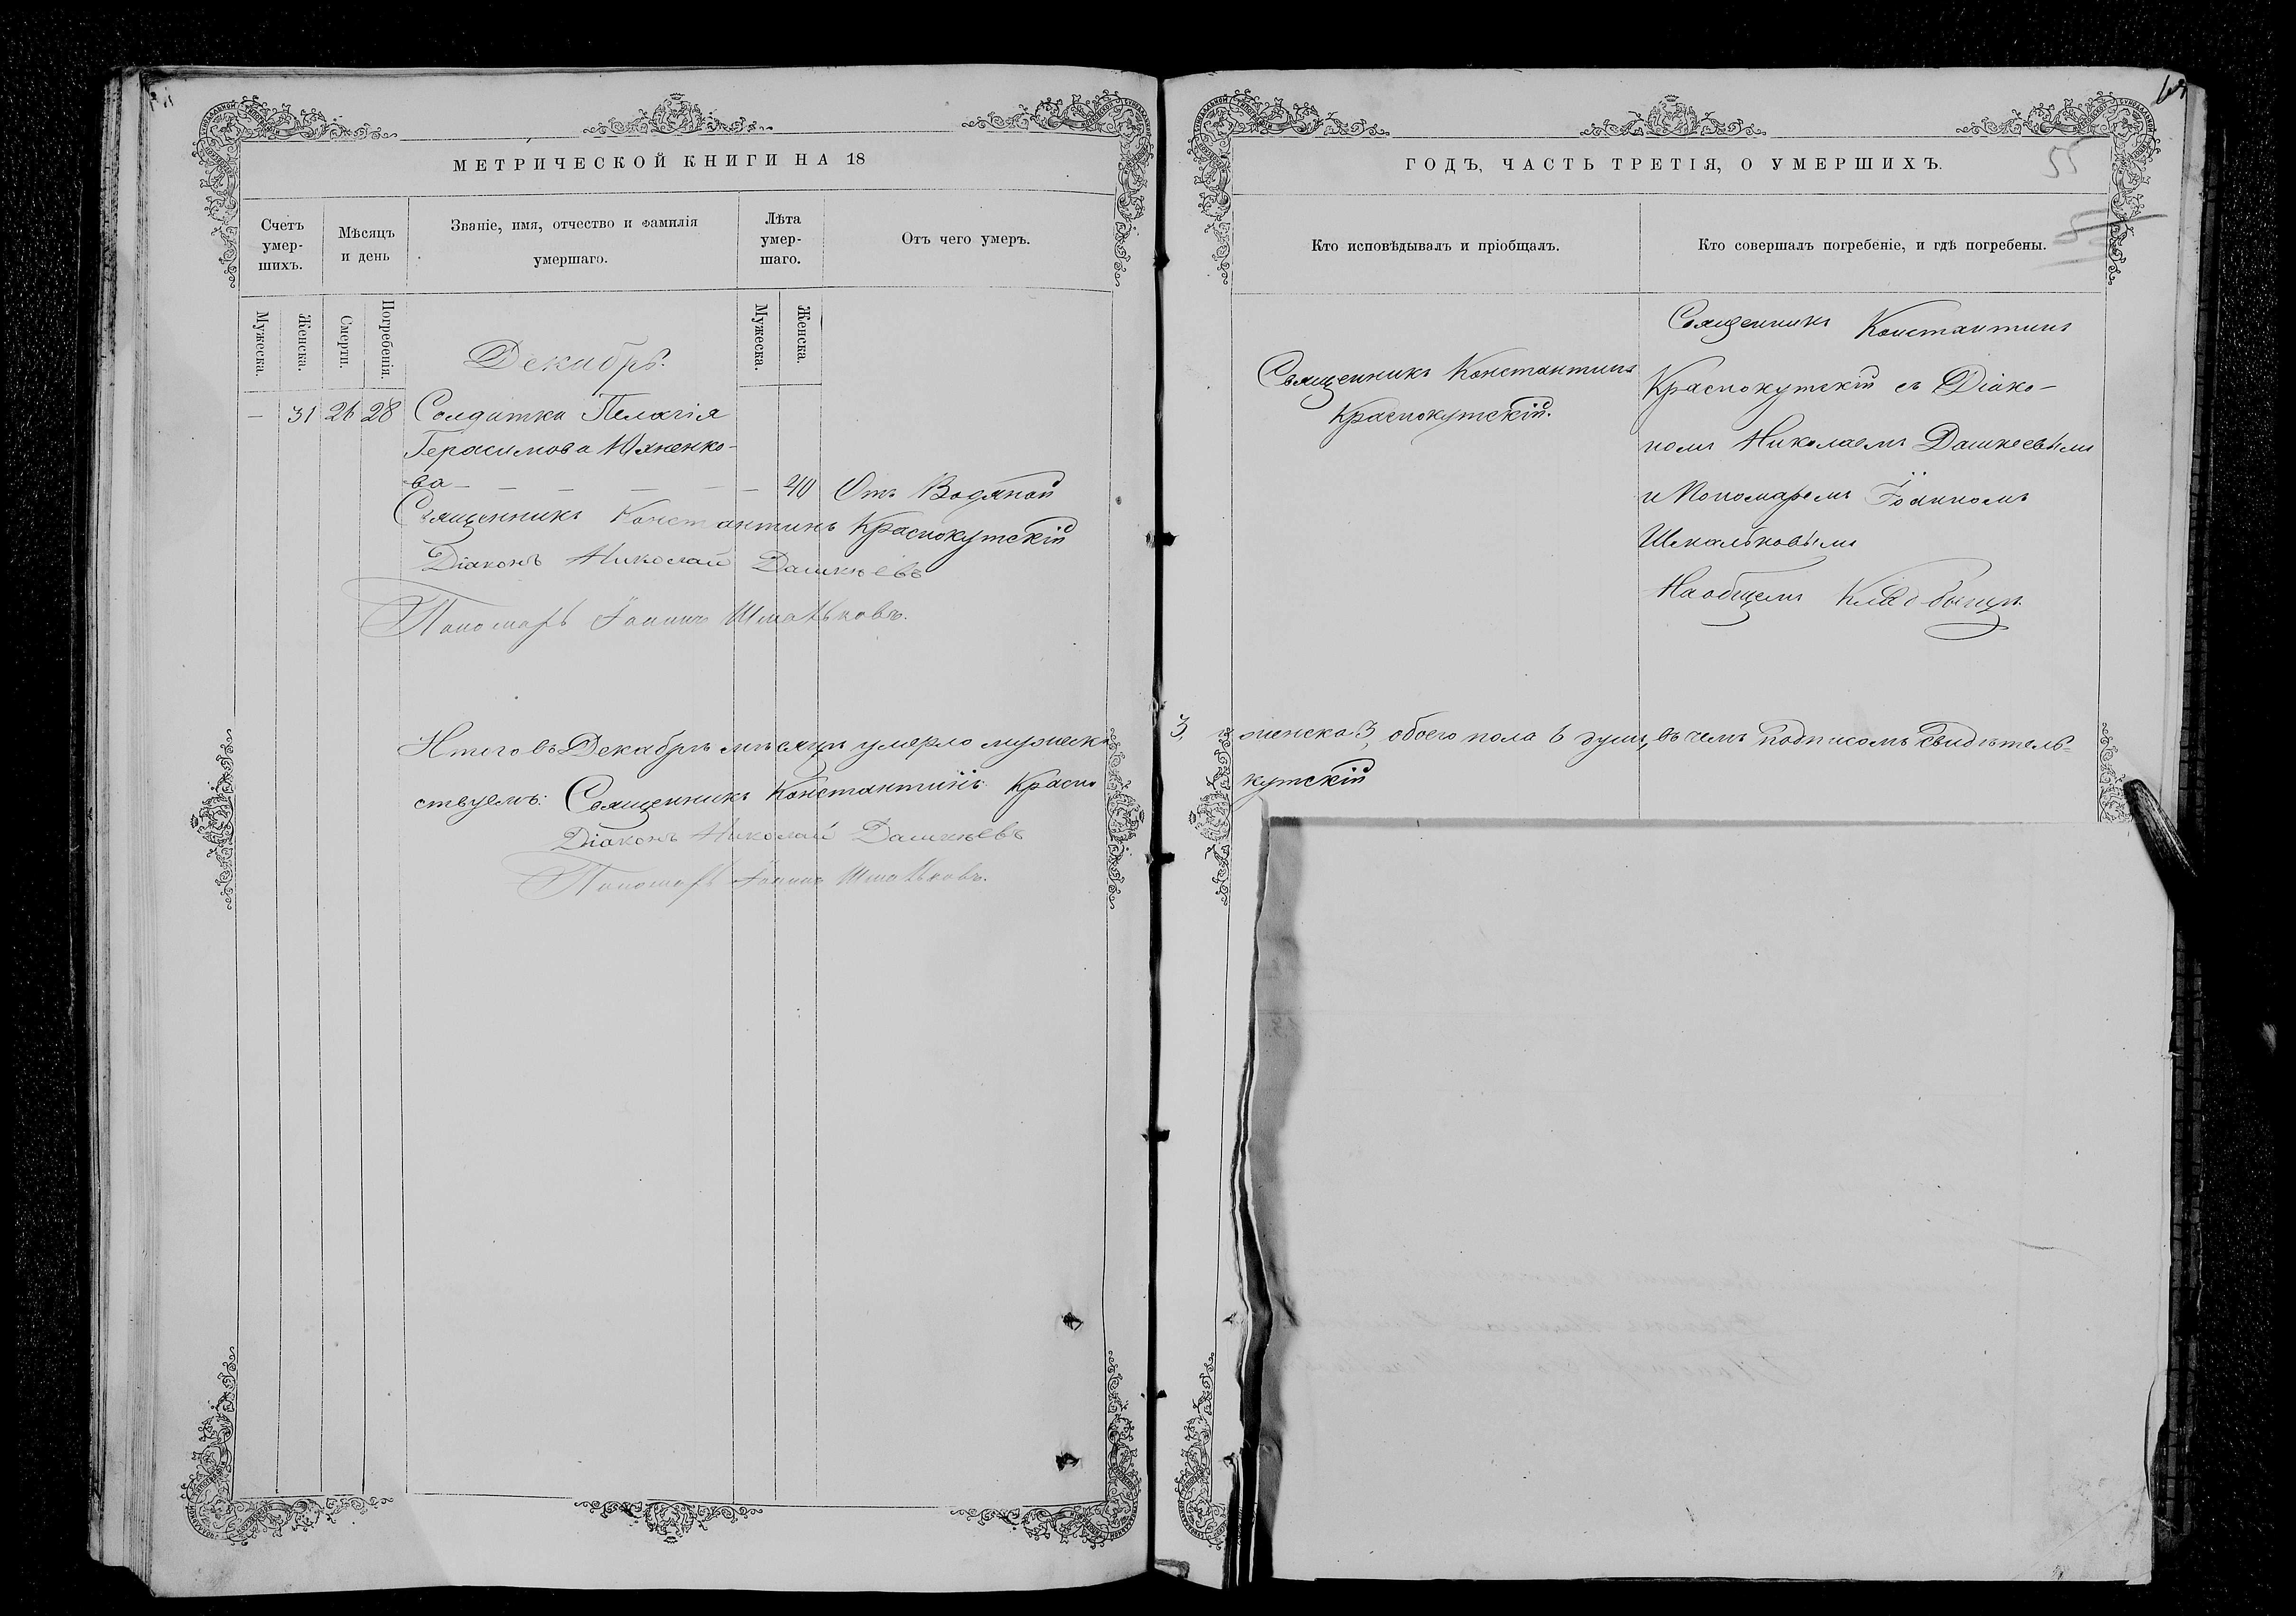 МЕТРИЧЕСКОЙ КНИГИ НА 18
Счетъ умер-шихъ.
Мѣсяцъ и день
Званіе, имя, отчество и фамилія умершаго.
Лѣта умер-шаго.
Отъ чего умеръ.
Мужеска.
Женска.
Смерти.
Погребенія.
Мужеска.
Женска.
Декабрь.
— 31 26 28 Солдатка Пелагія
Герасимова
ва — — — — — — 40 Отъ Водяной
Священникъ Константинъ Краснокутскій
Діаконъ Николай Дашкѣевъ
Пономарь Іоаннъ Шмальковъ.
Итого въ Декабрѣ мѣсяцѣ умерло мужеска
ствуемъ: Священникъ Константинъ Красно
Діаконъ Николай Дашкѣевъ
Пономарь Іоаннъ Шмальковъ.
ГОДЪ, ЧАСТЬ ТРЕТІЯ, О УМЕРШИХЪ.
55
Кто исповѣдывалъ и пріобщалъ.
Кто совершалъ погребеніе, и гдѣ погребены.
Священникъ Константинъ
Краснокутскій.
Священникъ Константинъ
Краснокутскій съ Діако-
номъ Николаемъ Дашкеевымъ
и Пономаремъ Іоанномъ
Шмальковымъ
На общемъ Кладбищѣ.
3, и женска 3, обоего пола 6 душъ, въ чемъ подписомъ свидѣтель-
кутскій